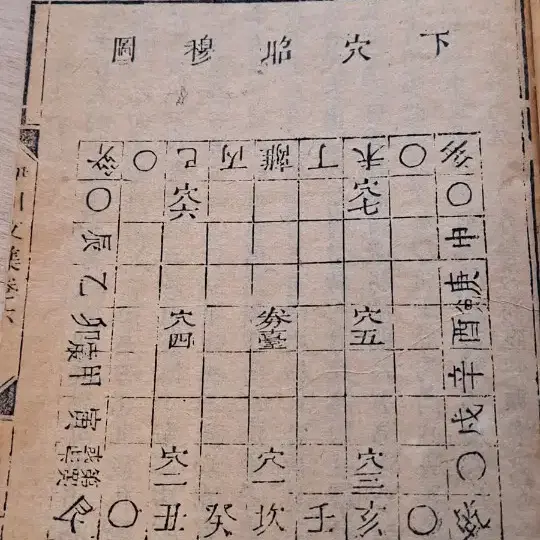 下穴昭穆圖
○未丁離丙巳○
○穴七穴六○
申辰
庚乙
酉穴五券臺穴四卯
辛甲
戌寅
○穴三穴一穴二
○亥壬坎癸丑○